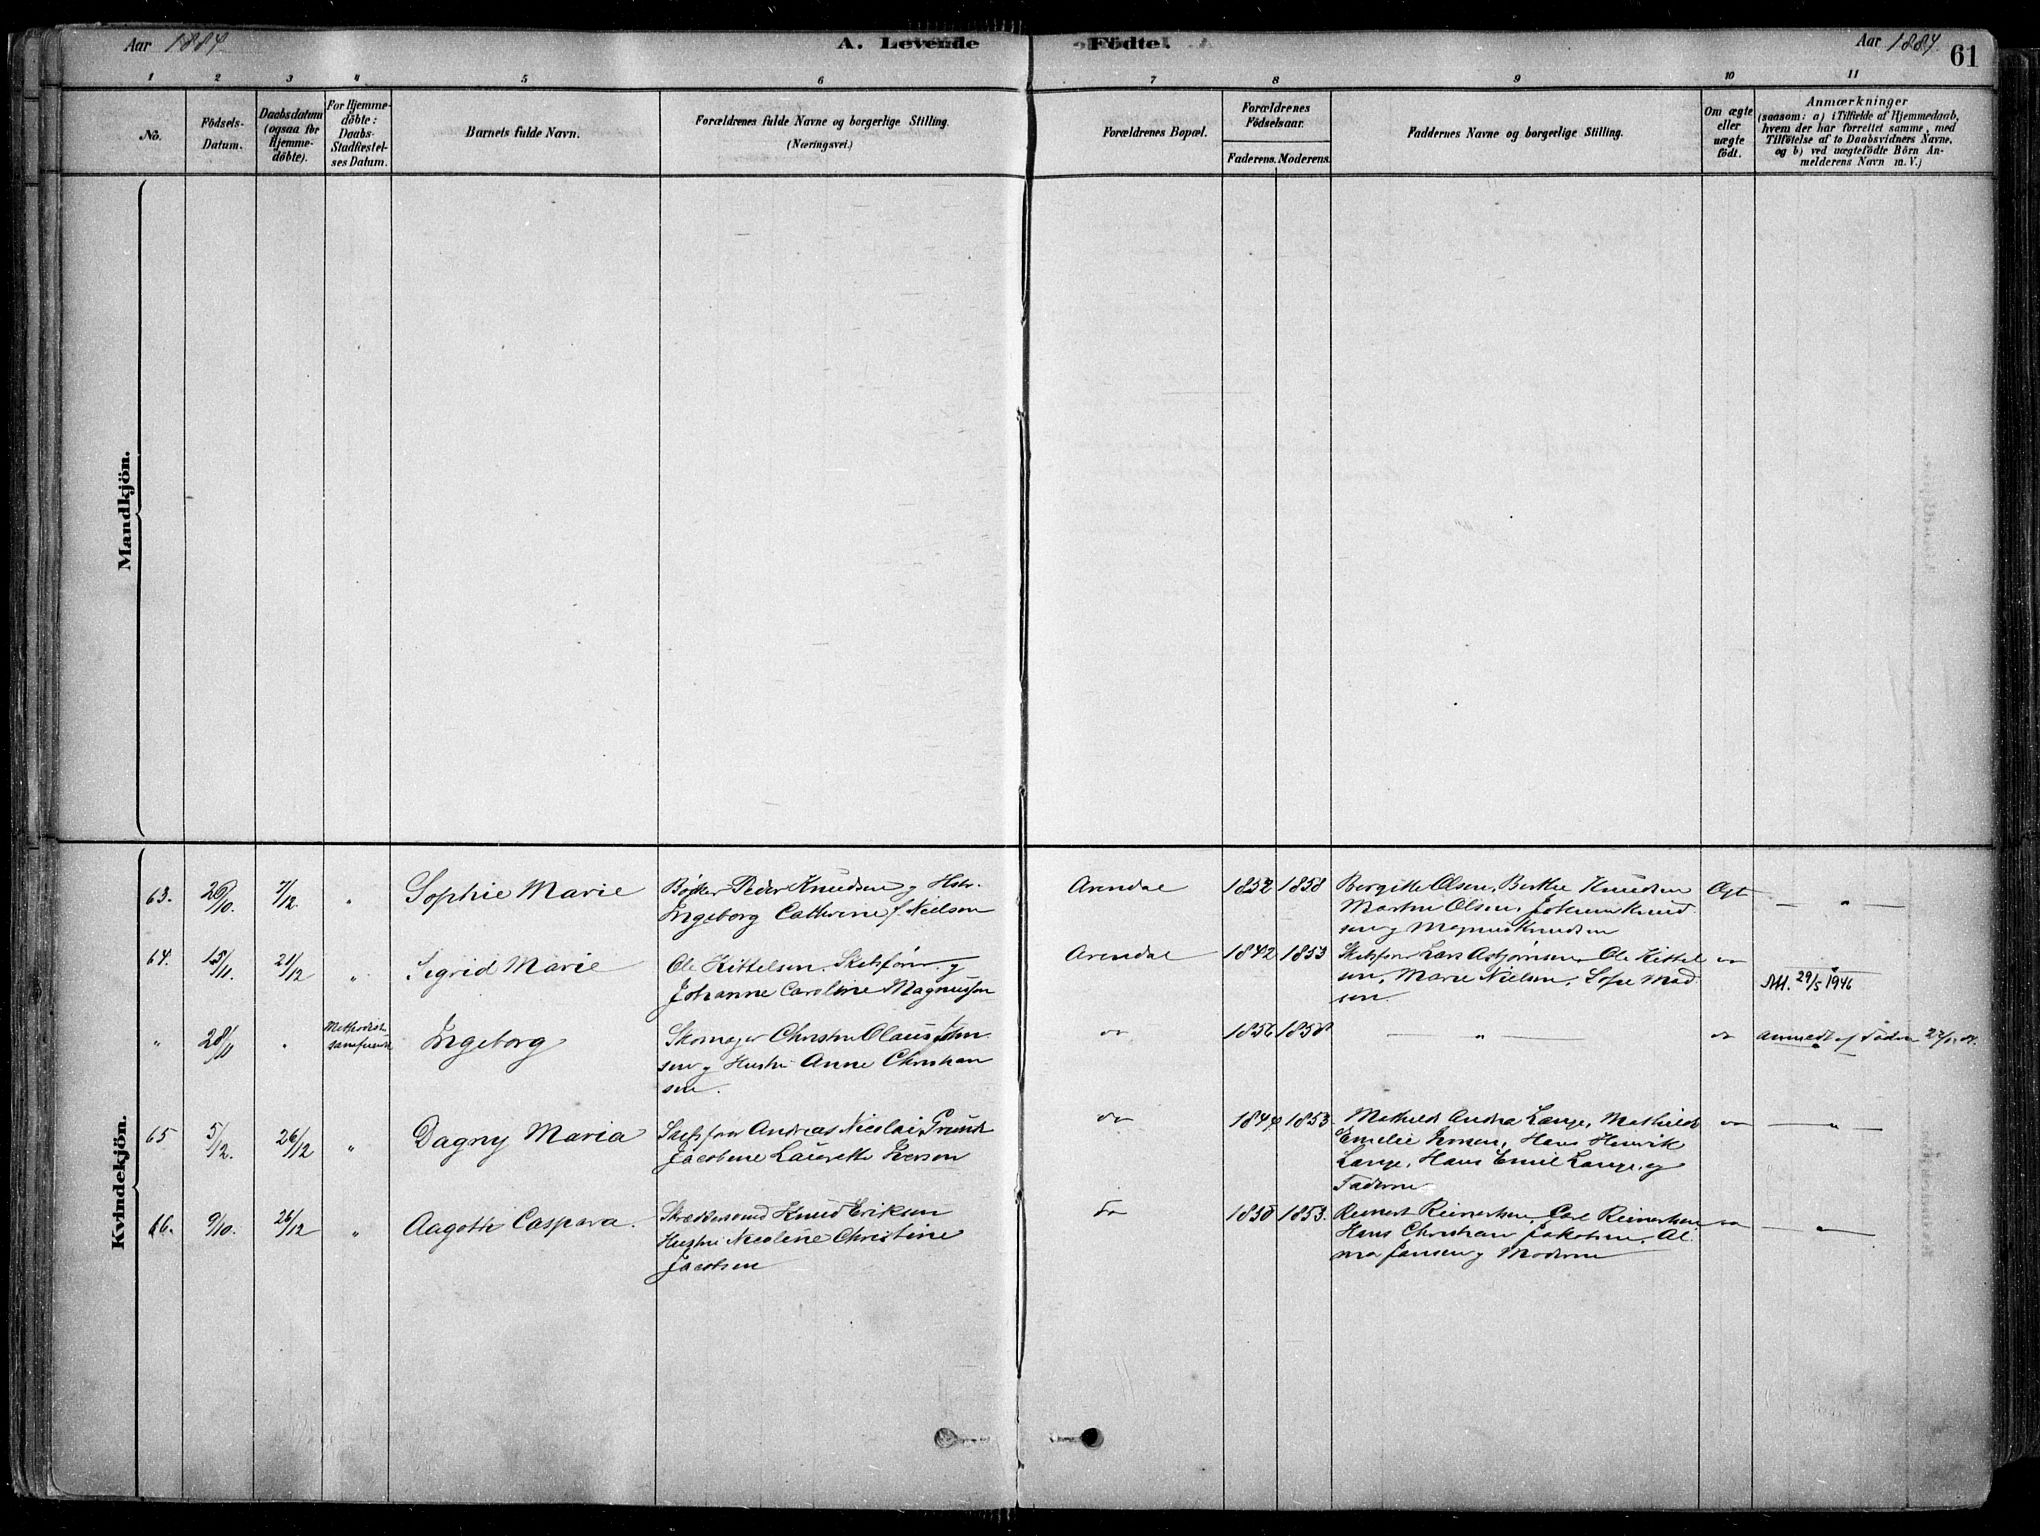 Aar 1884
A. Levende Födte.
Aar 1884.
61
1 2 3 4 5 6 7 8 9 10 11
No.
Födsels-
Datum.
Daabsdatum
(ogsaa for
Hjemme-
döbte).
For Hjemme-
döbte:
Daabs-
Stadfæstel-
ses Datum.
Barnets fulde Navn.
Forældrenes fulde Navne og borgerlige Stilling.
(Næringsvei.)
Forældrenes Bopæl.
Forældrenes
Födselsaar.
Faderens. Moderens.
Faddernes Navne og borgerlige Stilling.
Om ægte
eller
uægte
födt.
Anmærkninger
(saasom: a) i Tilfælde af Hjemmedaab,
hvem der har forrettet samme, med
Tilföielse af to Daabsvidners Navne,
og b) ved uægtefödte Börn An-
melderens Navn m. V.)
Mandkjön.
Kvindekjön.
63. 26/10. 7/12. " Sophie Marie
Bødker Peder Knudsen og Hstr.
Ingeborg Cathrine f. Nielsen
Arendal 1852 1858
Bergitte Olsen, Berthe Knudsen
Martin Olsen, Jokum Knud
sen og Magnus Knudsen
Ægt — " —
64. 15/11. 21/12 " Sigrid Marie
Ole Kittelsen, Skibsfører og
Johanne Caroline Magnussen
Arendal 1842 1853
Skibsfører Lars Asbjørnsen, Ole Kittel
sen, Marie Nielsen, Sofie Mad
sen
"
Att. 29/5 1946
" 28/11 " Methodist
samfund
Ingeborg
Skomager Christen Olaus John
sen og Hustru Anne Christian
sen.
do 1856 1858 — " — do
Anmeldt af Faderen
65 5/12. 26/12 " Dagny Maria
Skibsfører Andreas Nicolai
Jacobine Laurette Iversen
do 1844 1853.
Mathilde Andrea Lange, Mathilde
Emelie Iversen, Hans Henrik
Lange, Hans Emil Lange, og
Faderen
do — " —
66. 9/10. 26/12 " Aagoth Caspara.
Knud Eriksen
Hustru Nicoline Christine
Jacobsen
do 1850 1853.
Reinert Reinertsen, Carl Reinertsen
Hans Christian Jakobsen, Al
ma Jansen og Moderen
do — " —